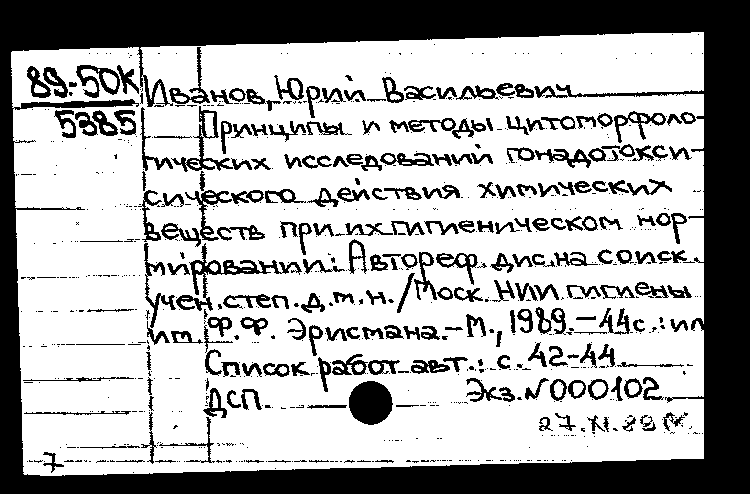 89-50К Иванов, Юрий Васильевич
5385 Принципы и методы цитоморфоло-
гических исследований гонадотокси-
сического действия химических
веществ при их гигиеническом нор-
мировании: Автореф. дис. на соиск.
учен. степ. д.м.н. / Моск. НИИ гигиены
им. Ф.Ф. Эрисмана.-М., 1989.-44с.: ил
Список работ авт.: с. 42-44.
ДСП. Экз. N 000102.
27.XI.89
7